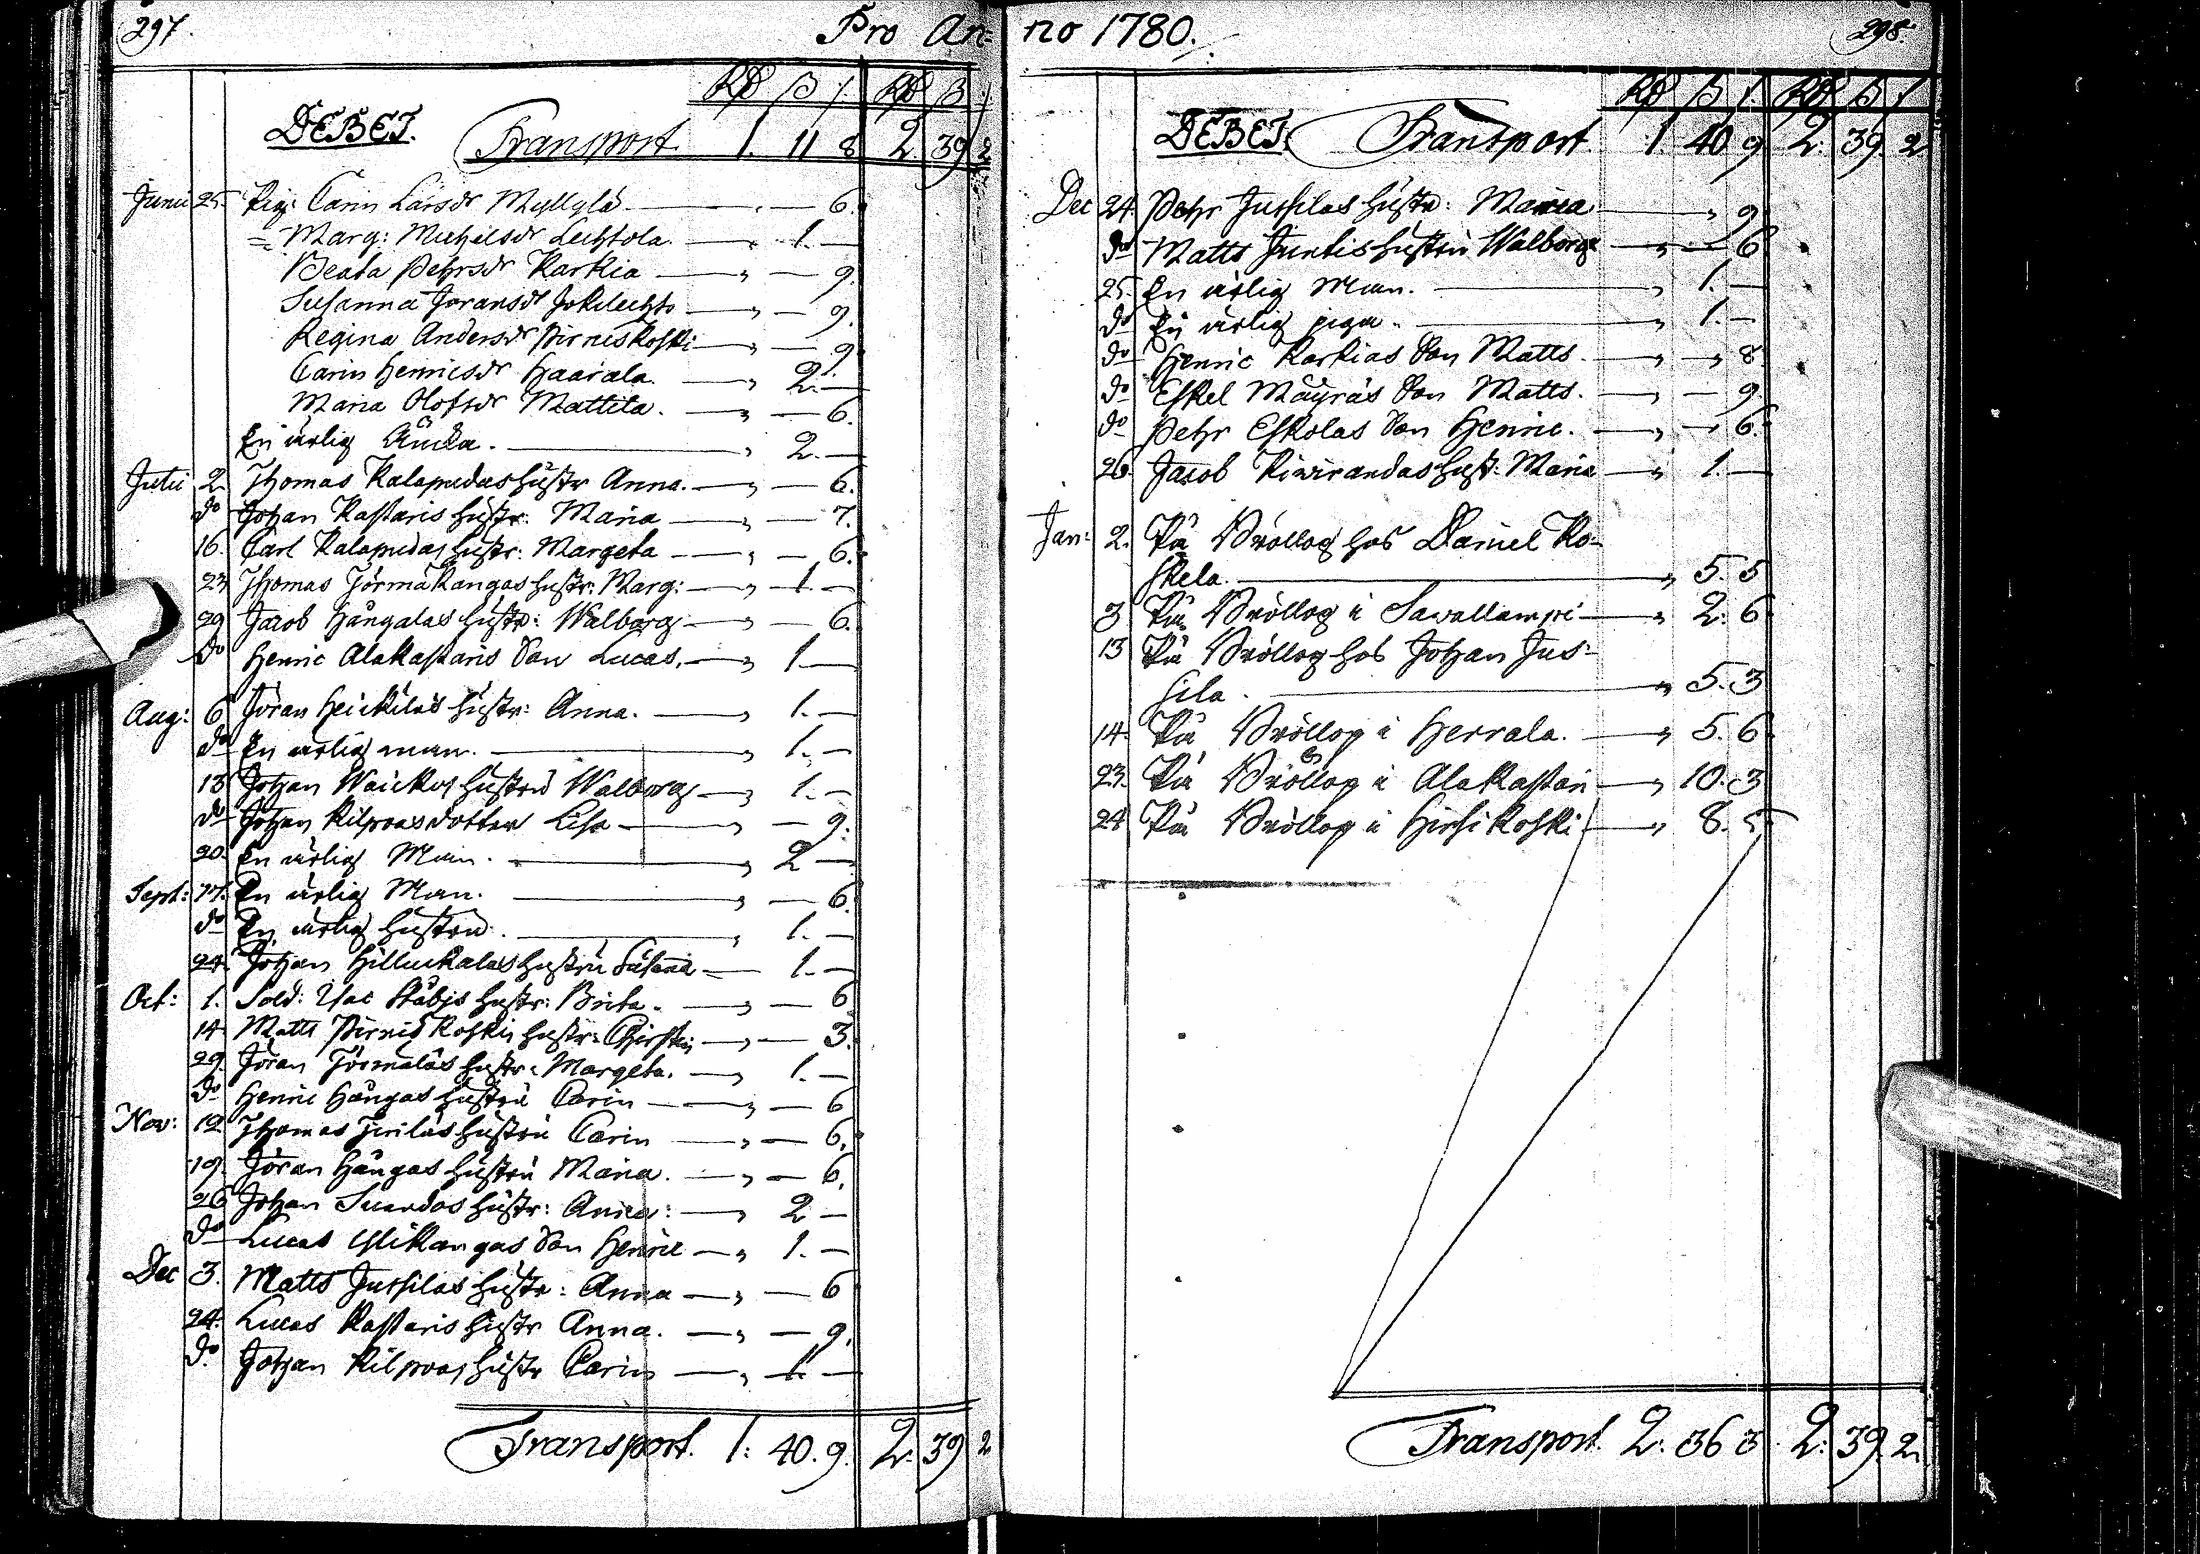 297. Pro An=
Rd ß / Rd ß /
DEBET. Transport 1. 11 8 2 39 2
Junii 25. Pig: Carin Larsdr Myllylä — " — 6.
= Marg: Michelsdr Lechtola. — " 1. —
Beata Pehrsdr Karkia — " — 9.
Susanna Jöransdr Jokilechto — " — 9.
Regina Andersdr Pirneskoski — " — 9.
Carin Henricsdr Haarala. — " 2. —
Maria Olofsdr Mattila. — " — 6.
En ärlig Änckia. — " 2. —
Julii 2. Thomas Kalapudas hustr Anna. — " — 6.
do Johan Kastaris hustr: Maria — " — 7.
16. Carl Kalapudas hustr: Margeta — " — 6.
23 Thomas Törmäkangas hustr: Marg: — " 1. —
29 Jacob Hångalas hustr: Walborg — " — 6.
do Henric Alakastaris Son Lucas. — " 1. —
Aug: 6 Jöran Heickiläs hustr: Anna. — " 1. —
do En ärlig man. — " 1. —
13 Johan Waickos hustru Walborg — " 1. —
do Johan Kilpuas dotter Lisa — " — 9.
20. En ärlig Man. — " 2 —
Sept: 17. En ärlig Man. — " — 6.
do En ärlig hustru. — " 1. —
24. Johan Hilluckalas hustru Susana — 1. —
Oct: 1. Sold: Isac Stäbjs hustr: Brita. — " — 6
14 Matts Pirneskoskis hustr: Chirstin — " — 3.
29. Jöran Törmäläs hustr: Margeta. — " 1. —
do Henric Hångas hustru Carin — " — 6
Nov: 12 Thomas Juriläs hustru Carin — " — 6.
19. Jöran Hångas hustru Maria. — " — 6.
26 Johan Suandos hustr: Anna: — " 2 —
do Lucas Ylikangas Son Henric — " 1. —
Dec 3. Matts Jussilas hustr: Anna — " — 6
24. Lucas Kastaris hustr Anna. — " — 9.
do Johan Kilpuas hustr Carin — " 1. —
Transport. 1: 40. 9. 2: 39 2
no 1780. 298.
Rd ß / Rd ß /
DEBET. Transport 1. 40 9 2: 39. 2
Dec 24. Pehr Jussilas hustr: Maria — " 9
do Matts Juntis hustru Walborg — " — 6
25. En ärlig Man. — " 1. —
do En ärlig piga. — " 1. —
do Henric Karkias Son Matts. — " — " 8
do Eskel Mäyräs Son Matts. — " — 9
do Pehr Eskolas Son Henric. — " — 6.
26 Jacob Kiwirandas hust: Maria — " 1. —
Jan: 2. På Bröllop hos Daniel Ko-
skela. — " 5. 5
3 På Bröllop i Sawallampi — " 2. 6
13 På Bröllop hos Johan Jus-
sila. — " 5. 3
14 På Bröllop i Herrala. — " 5. 6
23. På Bröllop i Alakastari — " 10. 3
24 På Bröllop i Hirsikoski — " 8. 5
Transport. 2: 36 3 2: 39. 2